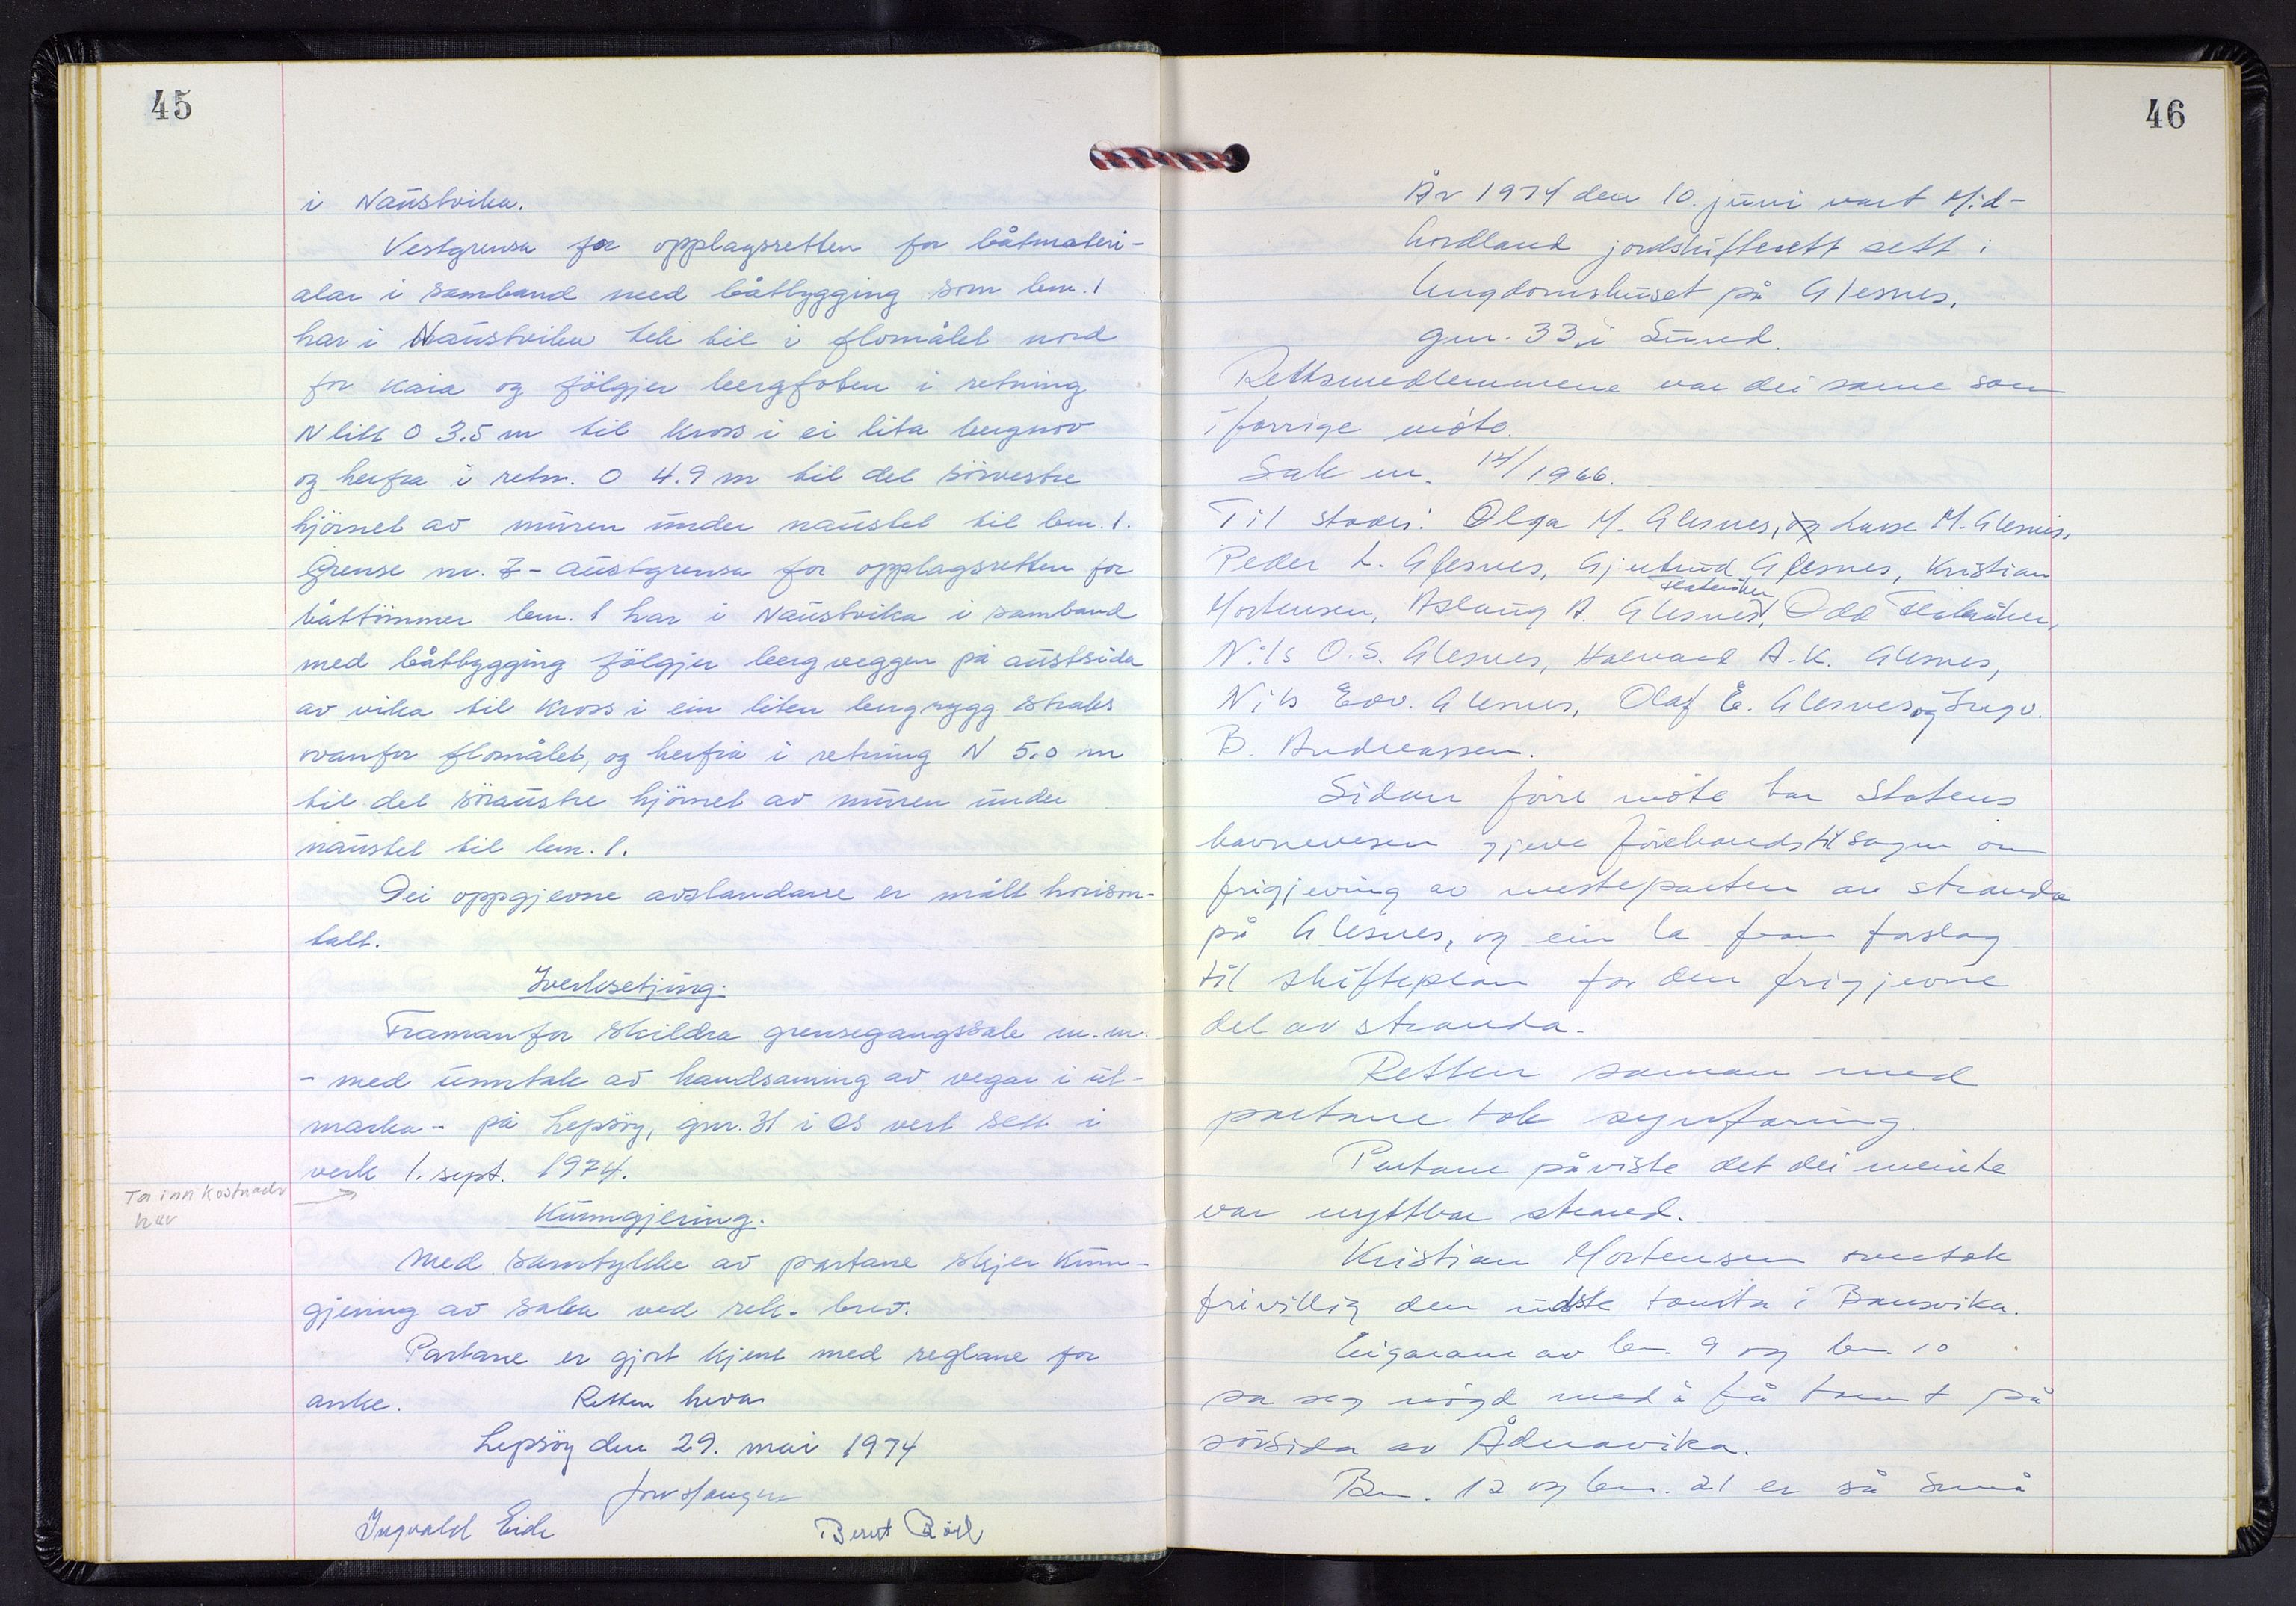 45
i Naustvika.
Vestgrensa for opplagsretten for båtmateri-
alar i samband med båtbygging som bnr. 1
har i Naustvika tek til i flomålet nord
for kaia og följgjer bergfoten i retning
N litt O 3.5 m til kross i ei lita bergnov
og herfra i retn. O 4.9 m til det sörvestre
hjörnet av muren under naustet til bnr. 1.
Grense nr. 7 - austgrensa for opplagsretten for
båttömmer bnr. 1 har i Naustvika i samband
med båtbygging fölgjer bergveggen på austsida
av vika til kross i ein liten bergrygg straks
ovanfor flomålet, og herfrå i retning N 5.0 m
til det söraustre hjörnet av muren under
naustet til bnr. 1.
Dei oppgjevne avstandane er målt horison-
talt.
Iverksetjing.
Framanfor skildra grensegangssak m.m.
- med unntak av handsaming av vegar i ut-
marka - på Lepsöy, gnr. 31 i Os vert sett i
verk 1. sept. 1974.
Ta inn kostnader
her
Kunngjering.
Med samtykke av partane skjer kunn-
gjering av saka ved rek. brev.
Partane er gjort kjent med reglane for
anke. Retten heva
Lepsöy den 29. mai 1974
Ingvald Eide Bernt
46
År 1974 den 10. juni vart Mid-
hordland jordskifterett sett i
Ungdomshuset på Glesnes,
gnr. 33 i Sund.
Rettsmedlemmene var dei same som
i forrige möte.
Sak nr. 14/1966.
Til stades: Olga M. Glesnes, og Lasse M. Glesnes,
Peder L. Glesnes, Gjertrud Glesnes, Kristian
Flateråker
Mortensen, Aslaug A. Glesnes, Odd Flateråker,
Nils O.S. Glesnes, Halvard A.K. Glesnes,
Nils Edv. Glesnes, Olaf E. Glesnes og Ingv.
B. Andreassen.
Sidan förre möte har Statens
havnevesen gjeve förehandstilsagn om
frigjeving av mesteparten av stranda
på Glesnes, og ein la fram forslag
til skifteplan for den frigjevne
del av stranda.
Retten saman med
partane tok synfaring.
Partane påviste det dei meinte
var nyttbar strand.
Kristian Mortensen overtok
frivillig den ytste tomta i
Eigarane av bnr. 9 og bnr. 10
sa seg nögd med å få tomt på
sörsida av Ådnavika.
Bnr. 12 og bnr. 21 er så små